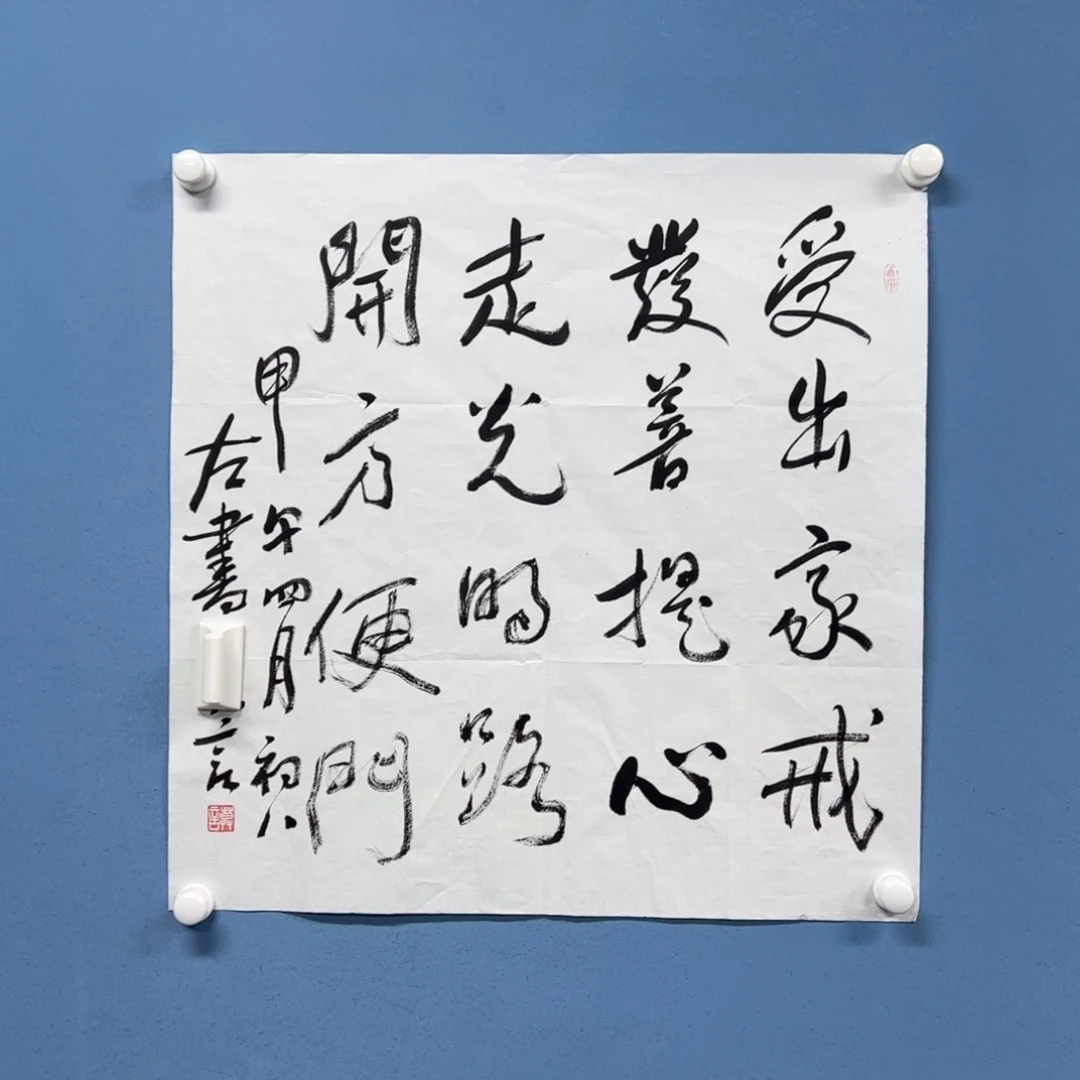 受出家戒
發菩提心
走光明路
開方便門
甲午四月初八
左書